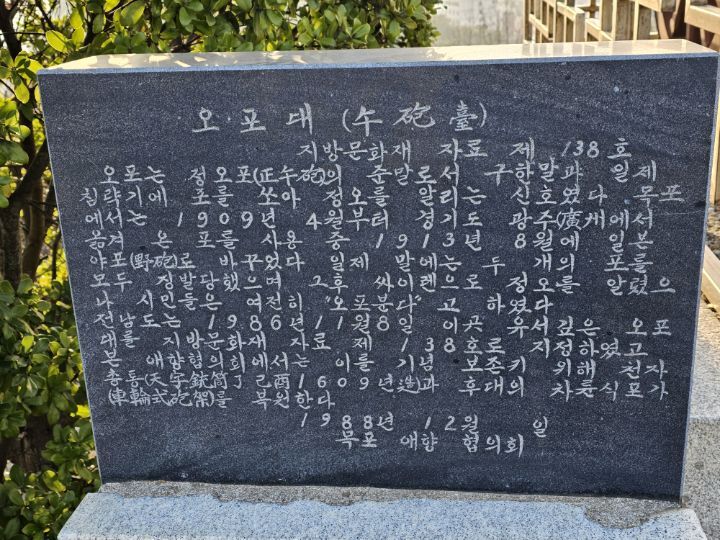 오포대 (午砲臺)
지방문화재 자료 제 138 호
오포는 정오포(正午砲)의 준말로서 구한말과 일제
침략기에 포를 쏘아 정오를 알리는 신호였다 목포
에서는 1909년 4월부터 경기도 광주(廣州)에서
옮겨 온 포를 사용중 1913년 8월에 일본
야포(野砲)로 바꾸었다 일제 말에는 두 개의 포를
모두 징발당했으며 그 후 싸이렌으로 정오를 알렸으
나 시민들은 여전히 "오포분다"고 하였다
전남도는 1986년 11월 8일 이곳 유서깊은 오포
대를 지방문화재자료 138호로 지정하였고
본 애향협의회에서 이를 기념 보존키 위해 천자
총통(天字銃筒 己酉 1609年造)과 후대의 차륜식포가
(車輪式砲架)를 복원한다
1988년 12월 일
목포 애향 협의회